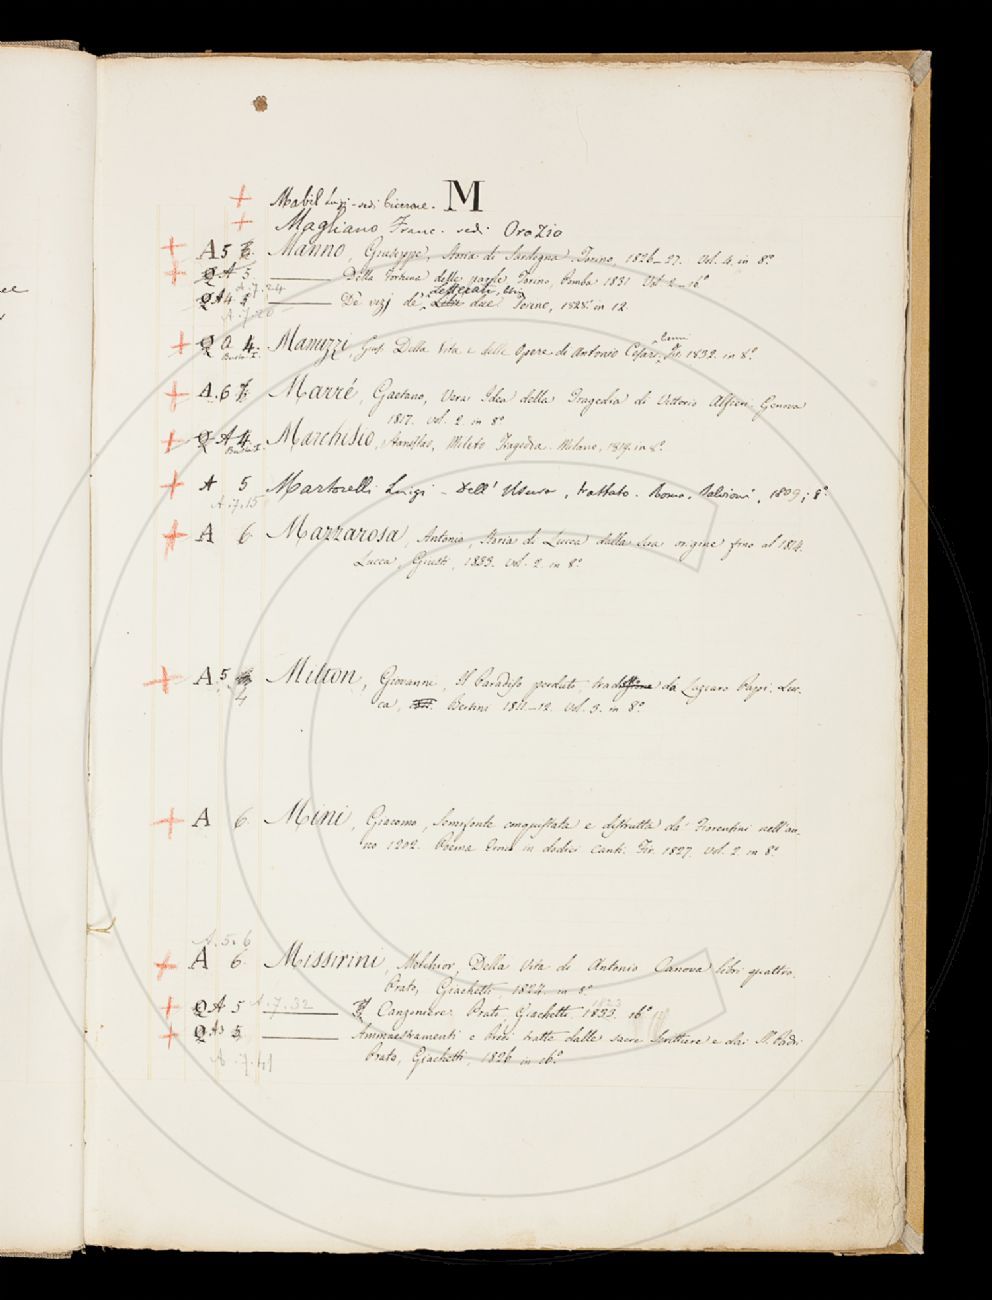 M
+ Mabil Luigi - vedi Cicerone.
+ Magliano Franc. vedi Orazio
+ A 5 Manno, Giuseppe, Storia di Sardegna Torino, 1826-27. Vol. 4. in 8.°
+ Q A 5. ——— Della Fortuna delle parole Torino, Pomba 1831 Vol. 2 - 16°
A.7.24
letterati,
+ Q A 4 ——— De' vizj de' libri due Torino, 1828. in 12.
A.7.20
+ Q a 4. Manuzzi, Gius. Della Vita e delle Opere di Antonio Cesari, Fir. 1832. in 8.°
Busta I.
+ A. 6 Marré, Gaetano, Vera Idea della Tragedia di Vittorio Alfieri. Genova
1817. Vol. 2. in 8.°
+ Q A 4. Marchisio, Stanislao, Mileto Tragedia. Milano, 1819. in 8.°
Busta I.
+ A 5 Martorelli Luigi - Dell' Usura, trattato. Roma, Salvioni, 1809; 8.°
A.7.15
+ A 6. Mazzarosa, Antonio, Storia di Lucca dalla sua origine fino al 1814.
Lucca, Giusti, 1833. Vol. 2. in 8.°
+ A. 5 Milton, Giovanni, Il Paradiso perduto, da Lazzaro Papi. Luc-
4 ca, Bertini 1811-12. Vol. 3. in 8.°
+ A 6. Mini, Giacomo, Semifonte conquistata e distrutta da' Fiorentini nell'an-
no 1202. Poema in dodici canti. Fir. 1827. Vol. 2. in 8.°
A.5.6
+ A 6. Missirini, Melchior, Della Vita di Antonio Canova libri quattro.
Prato, Giachetti, 1824. in 8.°
1823
+ Q A 5 A.7.32 ——— Canzoniere. Prato, Giachetti 1833. 16°
+ Q A 5 ——— Ammaestramenti e Preci tratte dalle sacre Scritture e dai SS. Padri
A.7.41 Prato, Giachetti, 1826 in 16.°